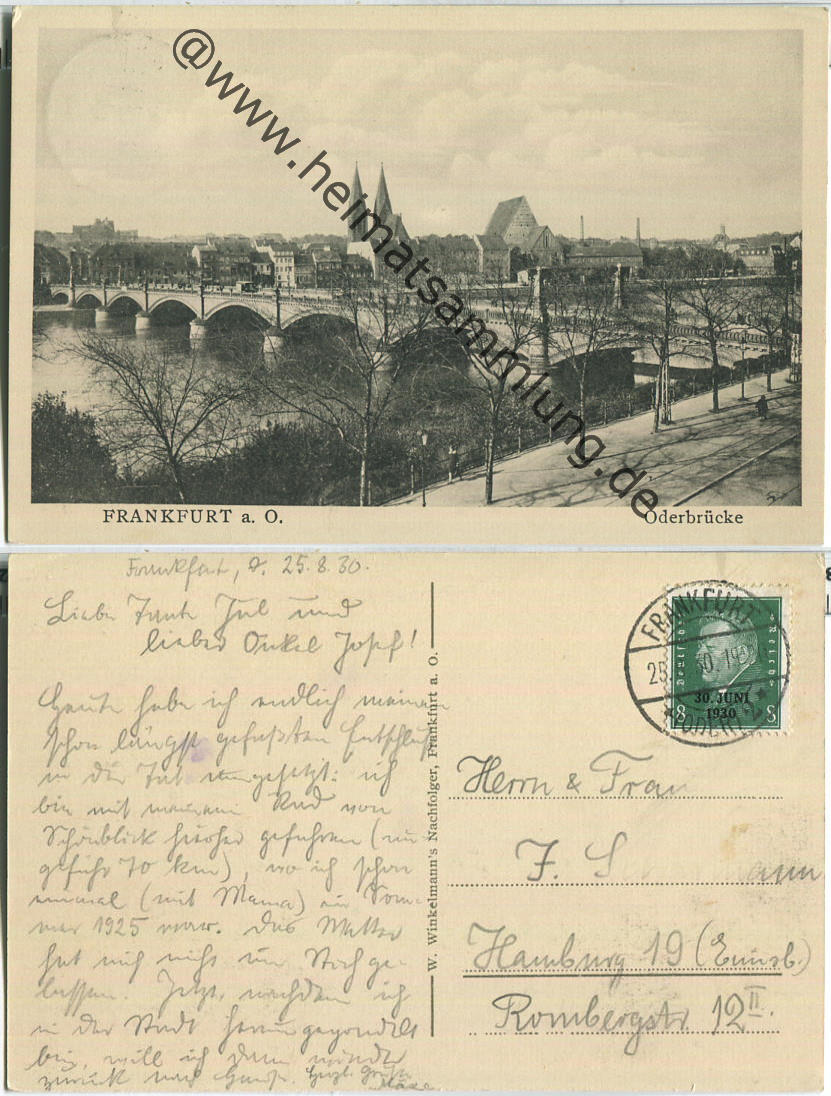 @www.heimatsammlung.de
FRANKFURT a. O.
Oderbrücke
Frankfurt, d. 25.8.30.
Liebe Tante Jul und
lieber Onkel Josef!
Heute habe ich endlich meinen
schon längst gefaßten Entschluß
in die Tat umgesetzt: ich
bin mit meinem Rad von
Schönblick hierher gefahren (un-
gefähr 70 km), wo ich schon
einmal (mit Mama) im Som-
mer 1925 war. Das Wetter
hat mich nicht im Stich ge-
lassen. Jetzt, nachdem ich
in der Stadt herumgegondelt
bin, will ich dann wieder
zurück nach Hause. Herzl. Grüße
W. Winkelmann's Nachfolger, Frankfurt a. O.
FRANKFURT
25. 30. 19
(ODER)
Deutsches Reich
30. JUNI
1930
8 8
Herrn & Frau
F. S mann
Hamburg 19 (Eimsb.)
Rombergstr. 12 II.